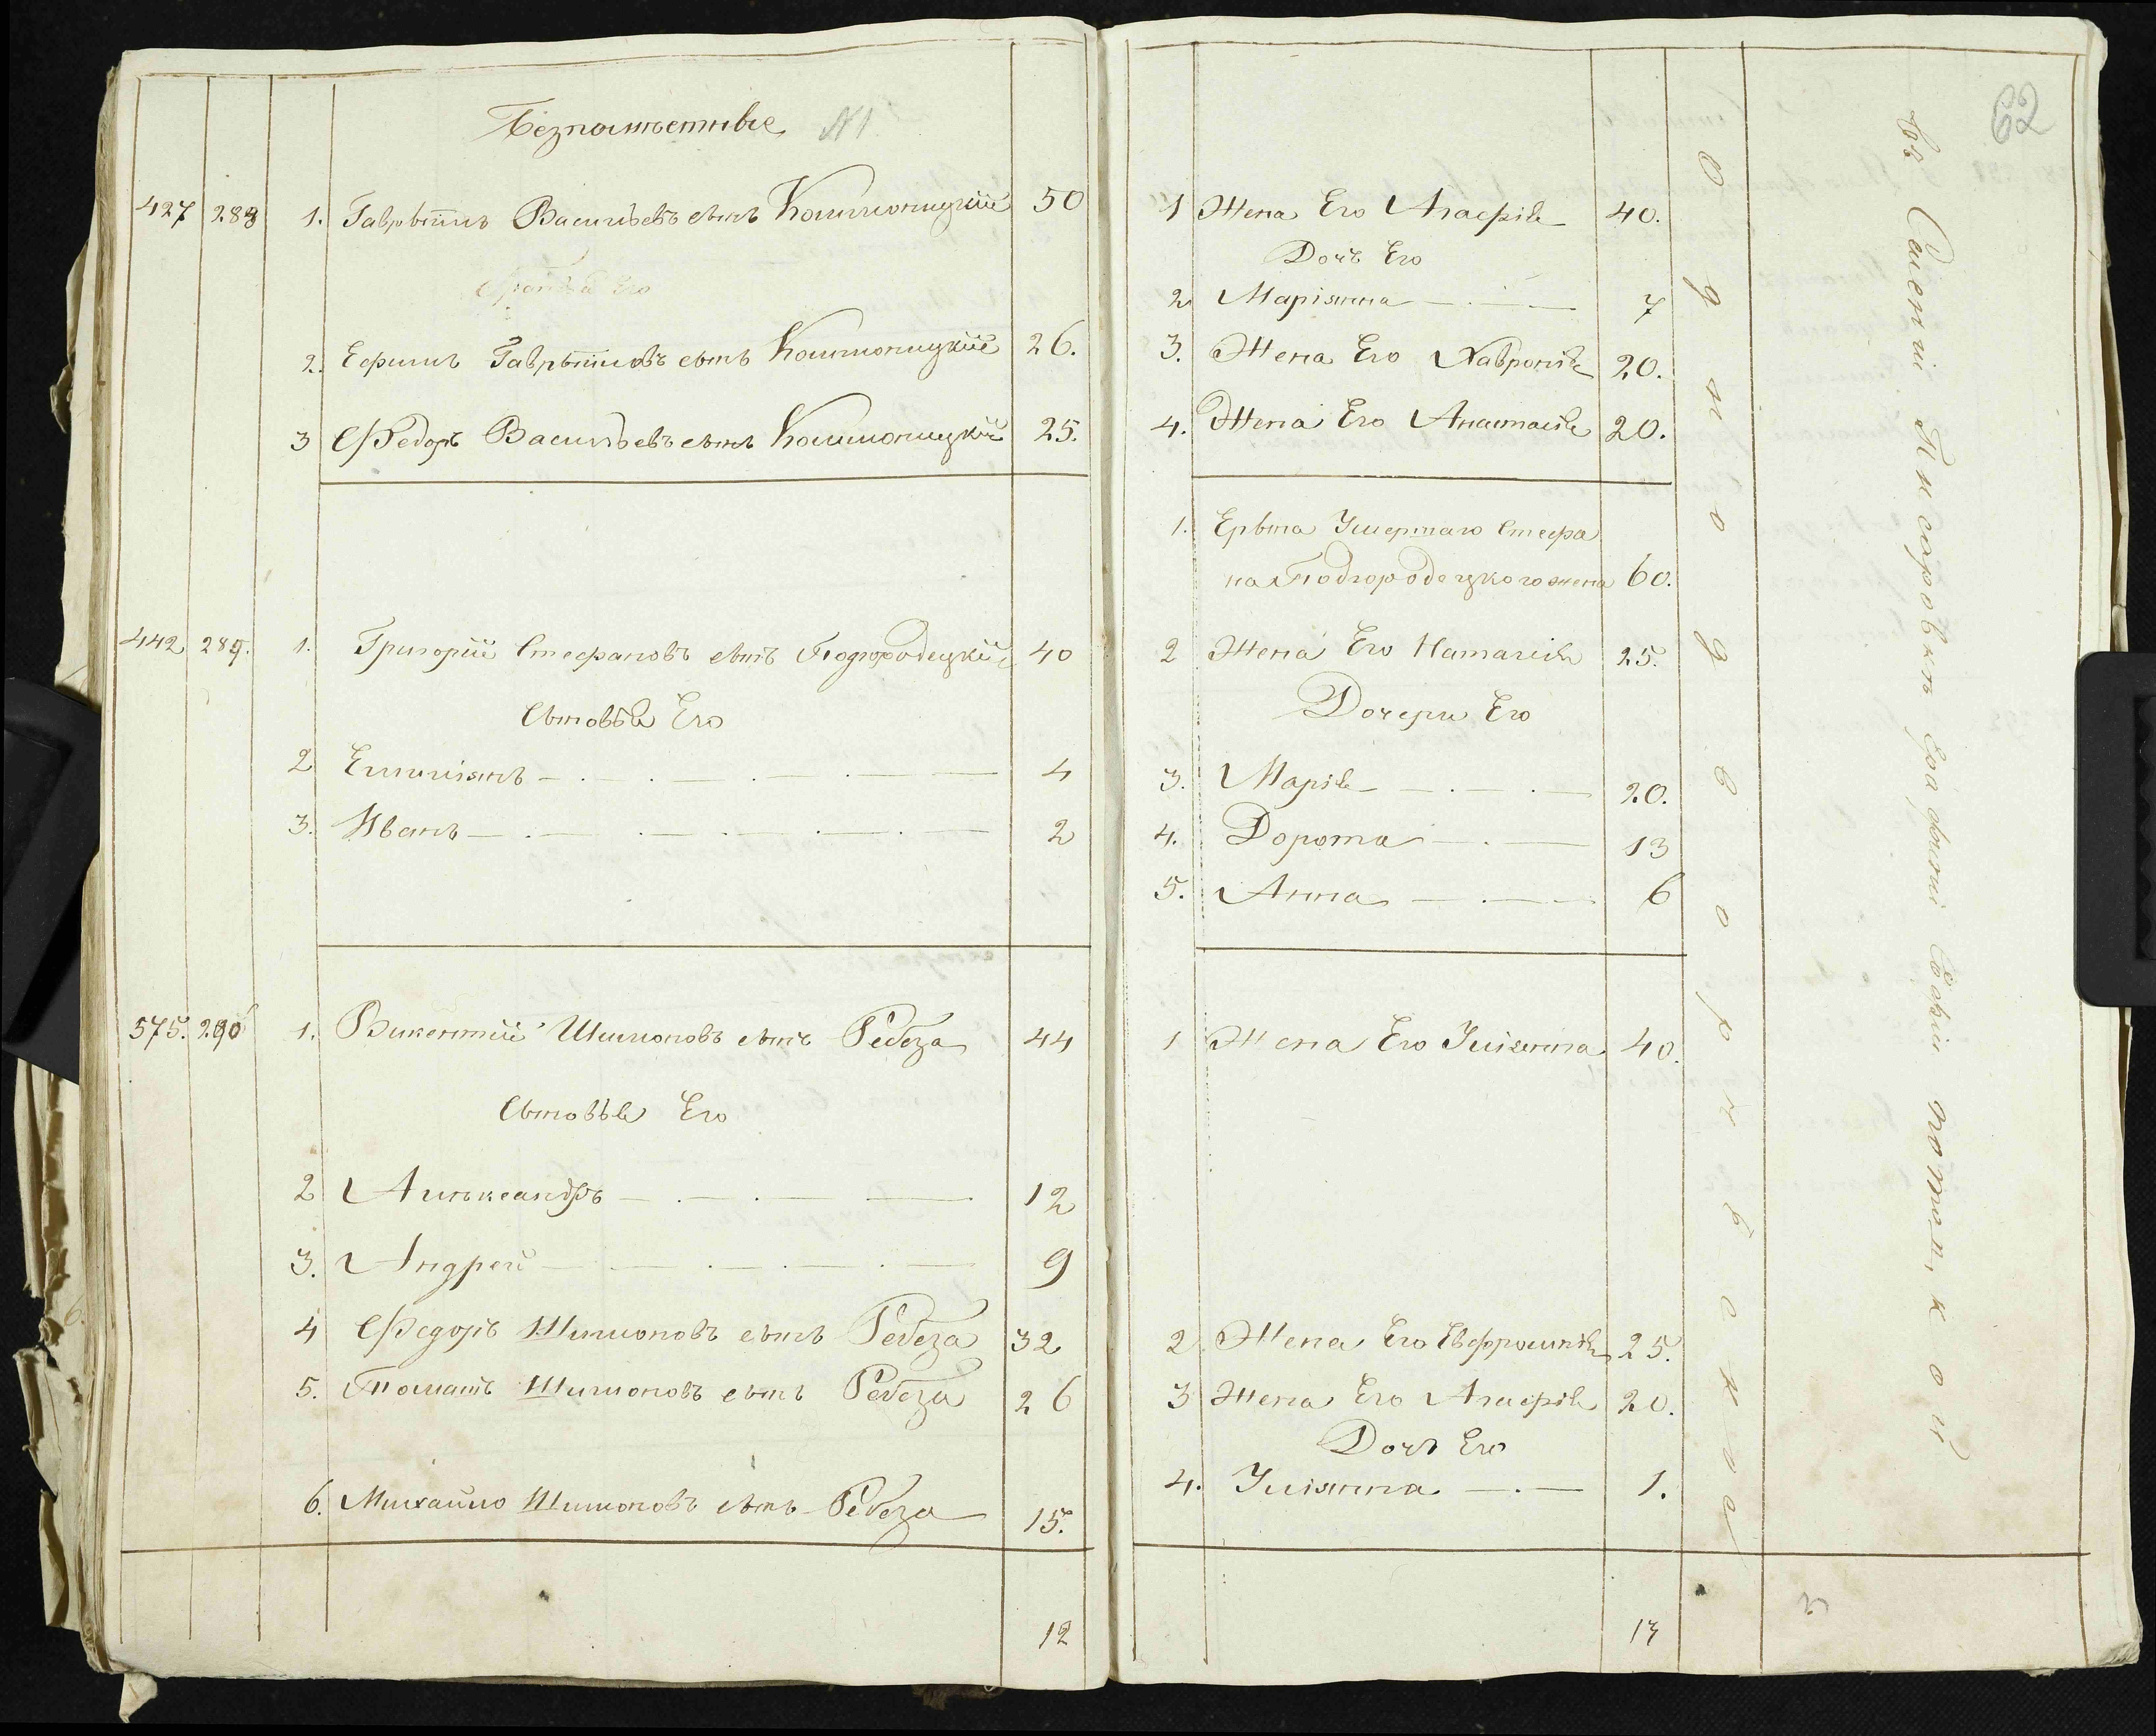 Безпомѣстные № 1
427 288 1. Гаврыилъ Васильевъ сынъ Колимоницкій 50
2. Ефимъ Гаврыиловъ сынъ Колимоницкій 26.
3 Федоръ Васильевъ сынъ Колимоницкій 25.
442 289. 1. Григорій Стефановъ сынъ Подгородецкій 40
Сыновья Его
2 Емиліянъ 4
3. Иванъ 2
575. 290 1. Викентій Шимоновъ сынъ Ребеза 44
Сыновья Его
2 Алѣксандръ 12
3. Андрей 9
4 Федоръ Шимоновъ сынъ Ребеза 32
5. Томашъ Шимоновъ сынъ Ребеза 26
6. Михайло Шимоновъ сынъ Ребеза 15.
12
62
1 Жена Его Агафія 40.
Дочь Его
2 Маріянна 7
3. Жена Его Хавронія 20.
4. Жена Его Анастасія 20.
1. Ерына Умершаго Стефа
на Подгородецкого жена 60.
2 Жена Его Наталія 25.
Дочери Его
3. Марія 20.
4. Дорота 13
5. Анна 6
1 Жена Его Юліянна 40.
2 Жена Его Евфросинія 25.
3 Жена Его Агафія 20.
Дочь Его
4. Юліянна 1.
13
Однодворческое
въ Селеніи